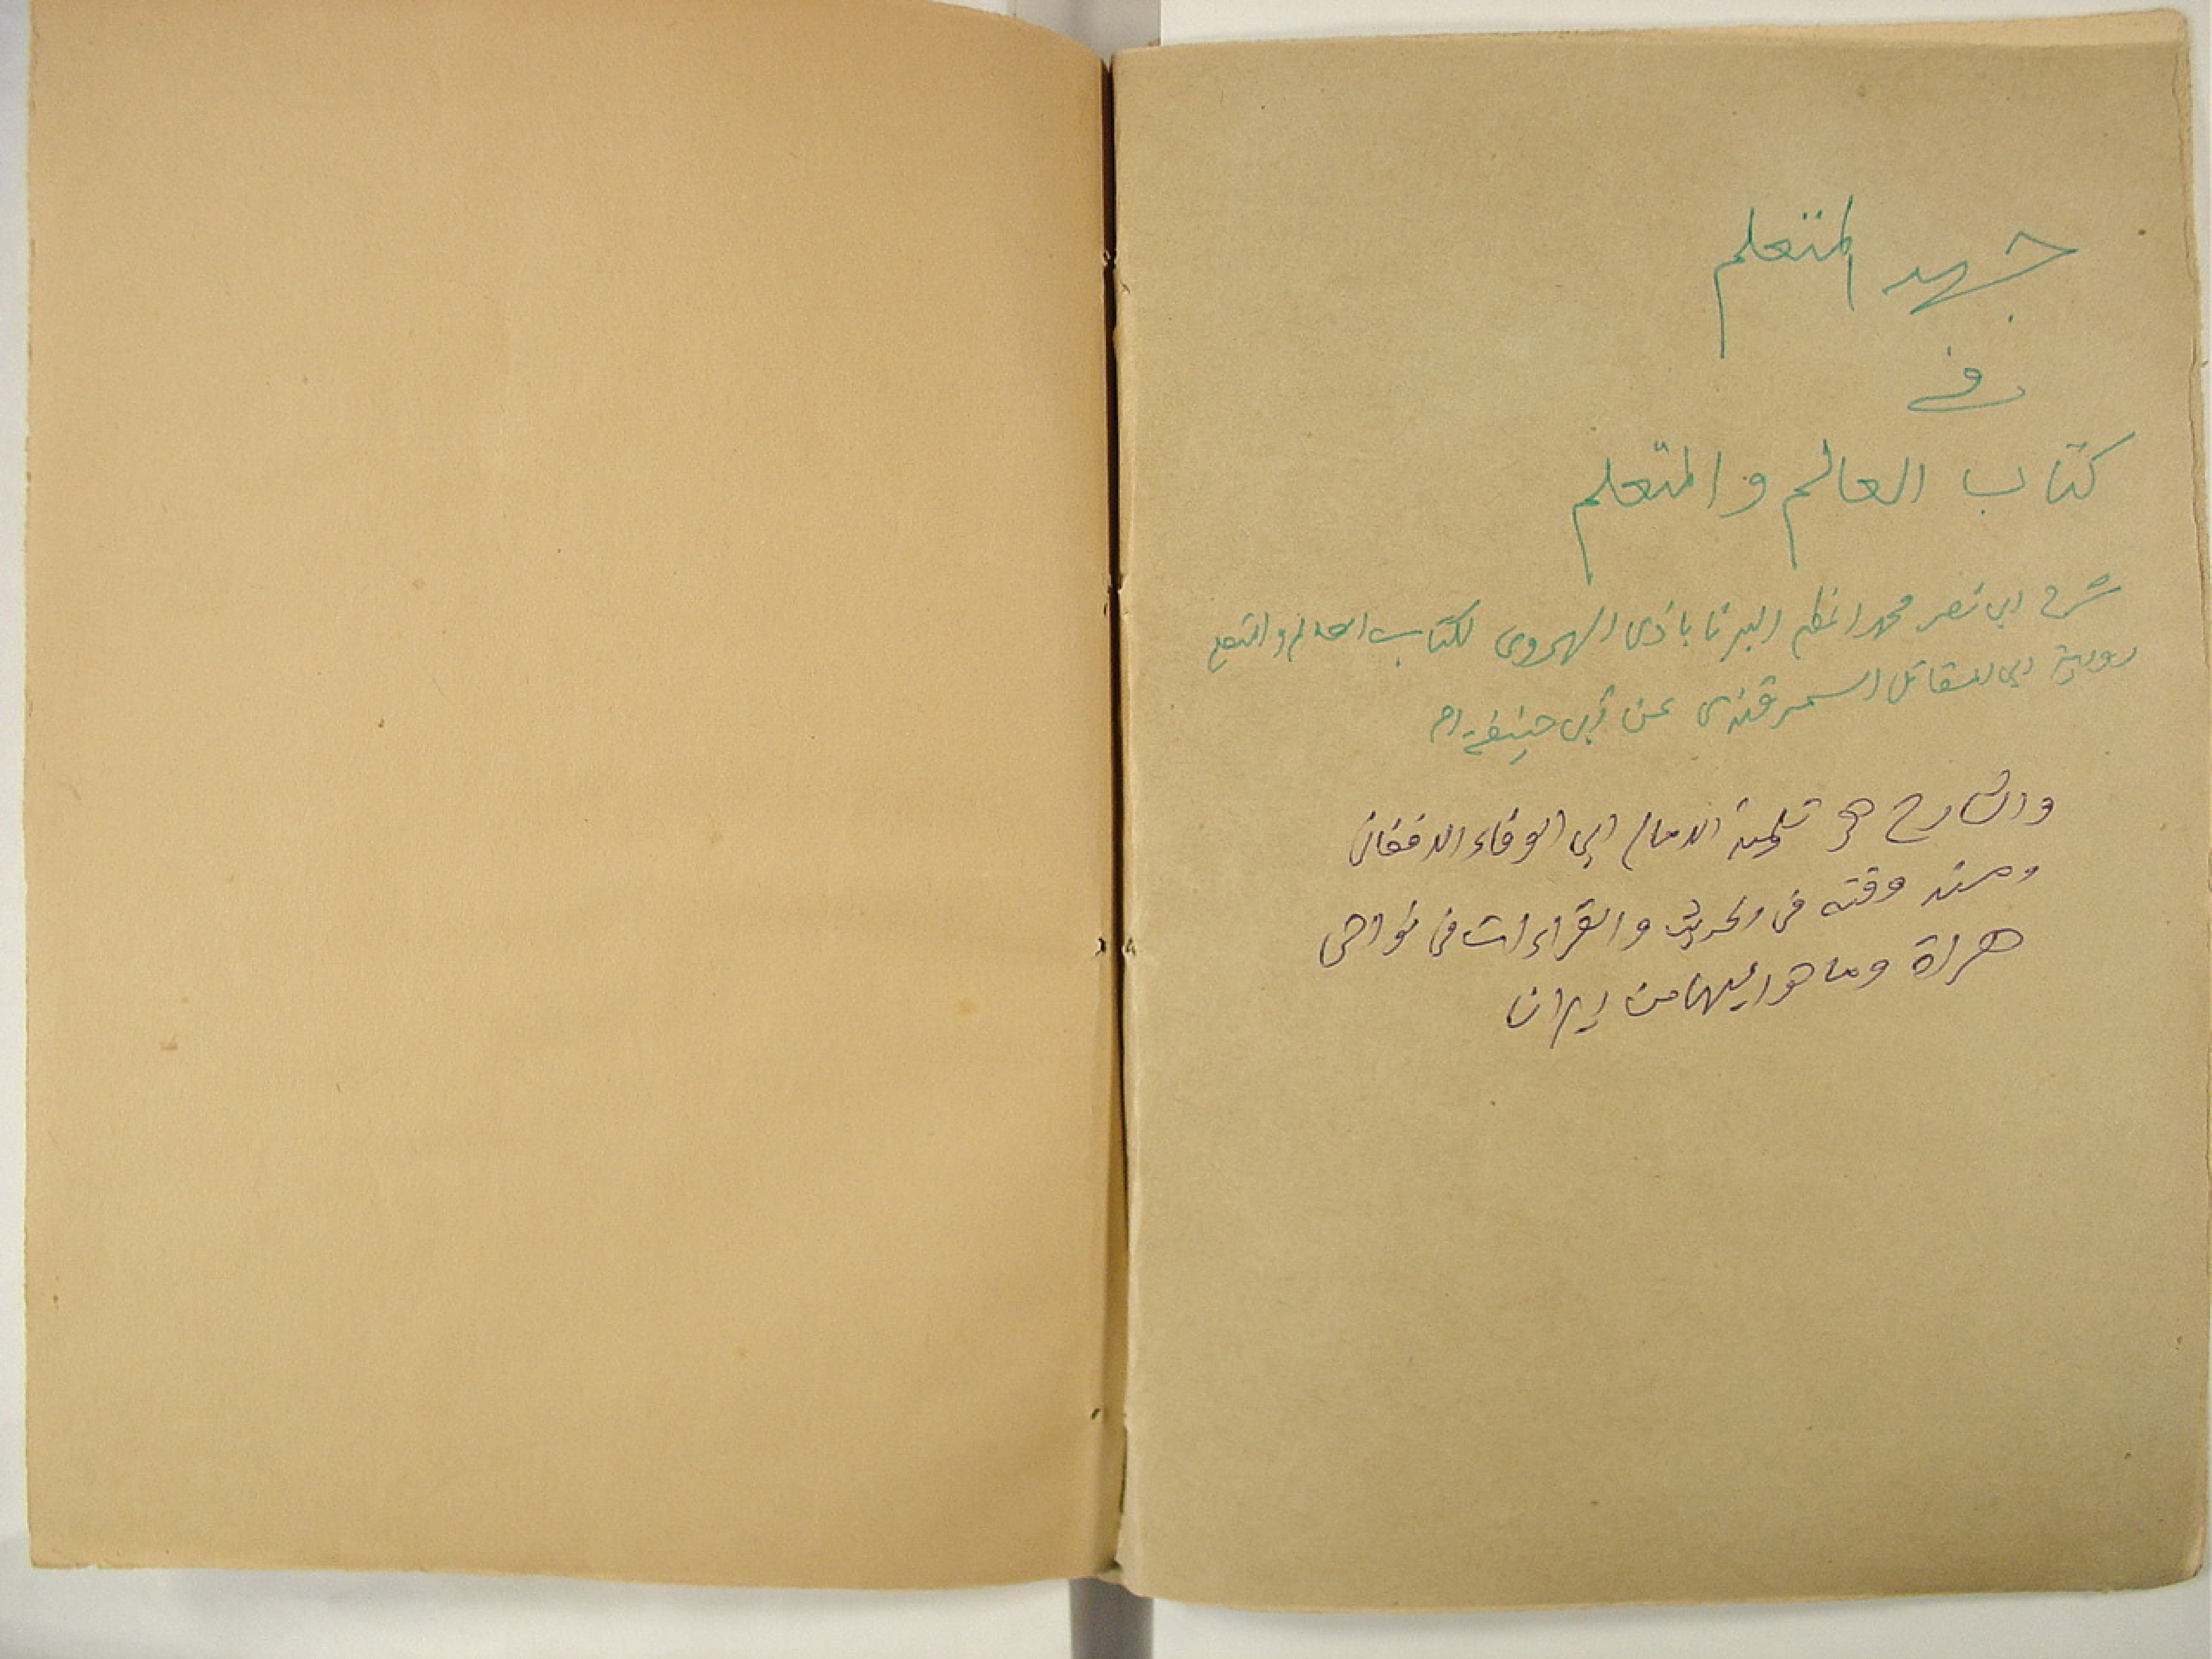 جهد المتعلم
في
كتاب العالم والمتعلم
شرح ابي نصر محمد البرنا باذى الهروى لكتاب العالم والمتعلم
رواية ابى المقاتل السمرقندى عن أبى حنيفة
والشارح هو تلميذ الامام ابي الوفاء الافغانى
ومسند وقته فى الحديث والقراءات فى نواحى
هراة وما هواليها من ايران